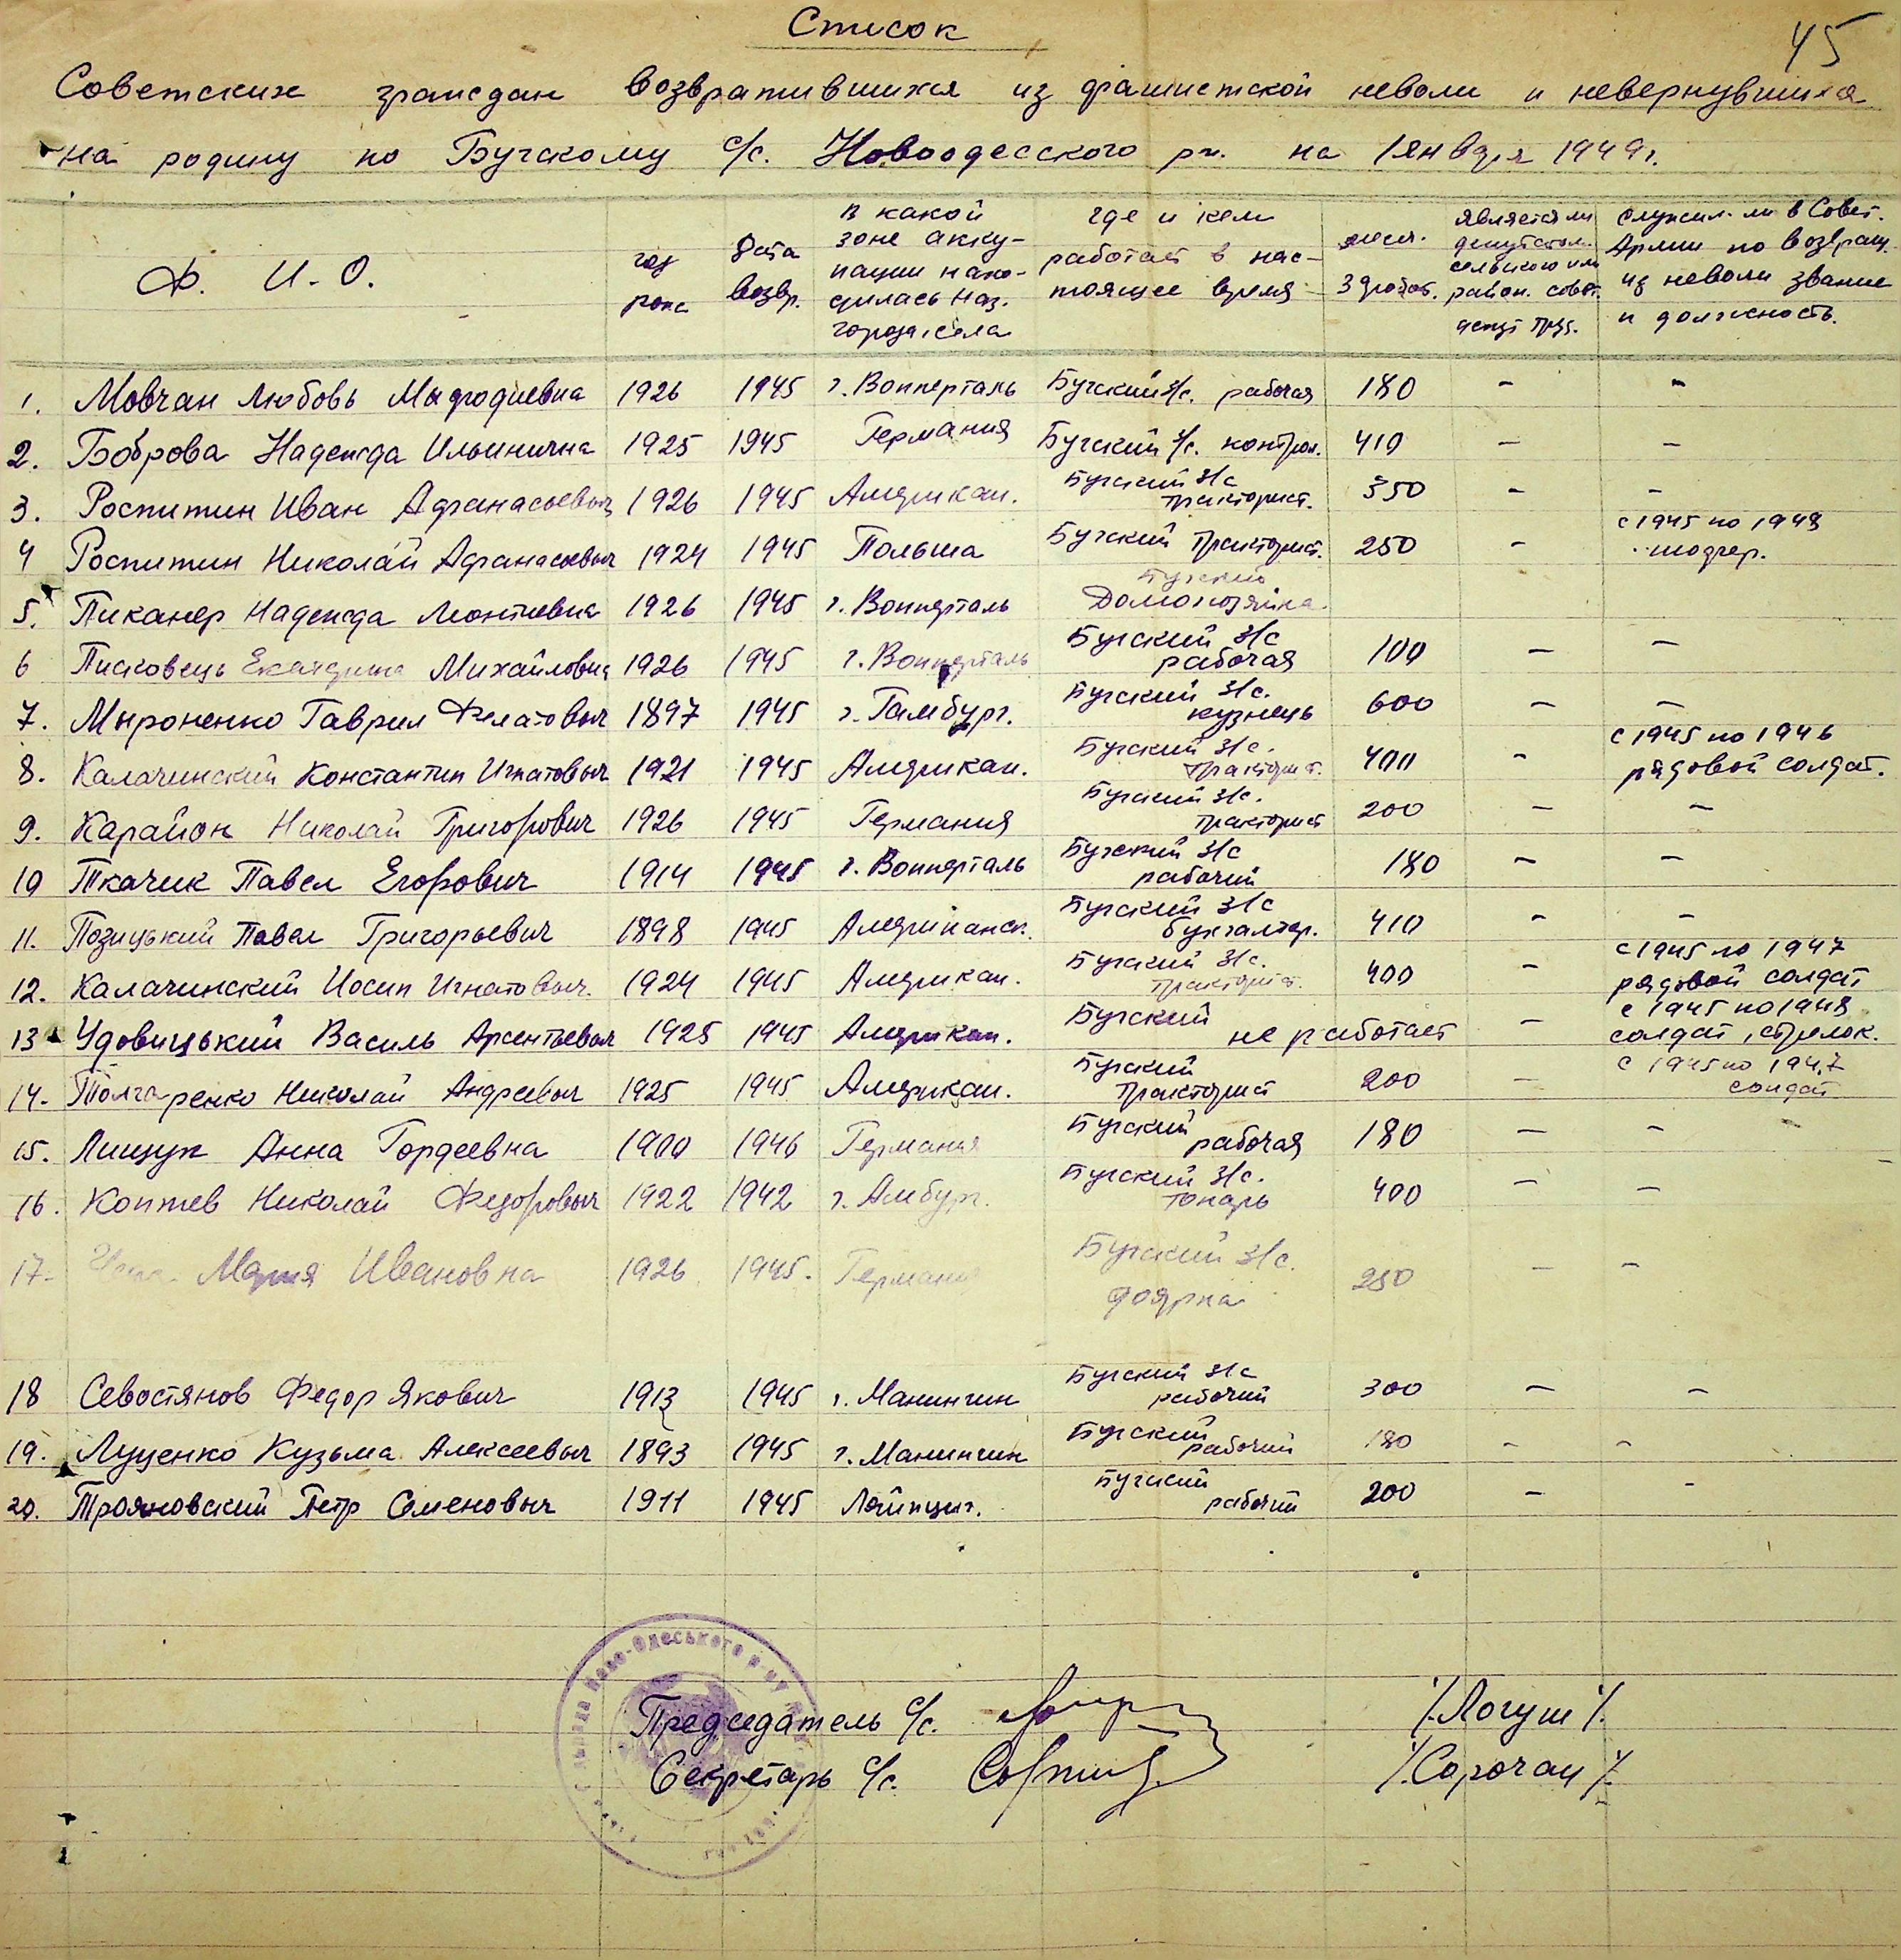 45
Список
Советских граждан возвратившихся из фашистской неволи и невернувшихся
на родину по Бугскому с/с. Новоодесского рн. на 1 января 1949 г.
Ф. И. О.
год
рожд
Дата
возвр.
в какой
зоне акку-
пации нахо-
дилась наз.
города, села
где и кем
работает в нас-
тоящее время
месяч.
Заработ.
является ли
депутатом
сельского или
район. совет.
депут труд.
служил ли в Совет.
Армии по возвращ.
из неволи звание
и должность.
1. Мовчан Любовь Мыфодиевна 1926 1945 г. Вопперталь Бугский з/с. рабочая 180 – –
2. Боброва Надежда Ильинична 1925 1945 Германия Бугский з/с. контрол. 410 – –
3. Роспитин Иван Афанасьевыч 1926 1945 Американ. Бугский з/с тракторист. 350 – –
4 Роспитин Николай Афанасьевыч 1924 1945 Польша Бугский тракторист. 250 – с 1945 по 1948
5. Пиканер Надежда Леонтиевна 1926 1945 г. Вопперталь Бугский Домохозяйка.
6 Писковець Екатерина Михайловна 1926 1945 г. Вопперталь Бугский з/с рабочая 100 – –
7. Мыроненко Гаврил Филатовыч 1897 1945 г. Гамбург. Бугский з/с. кузнець 600 – –
8. Калачинский Константин Игнатовыч 1921 1945 Американ. Бугский з/с. тракторист. 400 – с 1945 по 1946 рядовой солдат.
9. Карайон Николай Григорович 1926 1945 Германия Бугский з/с. тракторист 200 – –
10 Ткачик Павел Егорович 1914 1945 г. Вопперталь Бугский з/с рабочий 180 – –
11. Позицький Павел Григорьевич 1898 1945 Американск. Бугский з/с бухгалтер. 410 – –
12. Калачинский Иосип Игнатовыч. 1924 1945 Американ. Бугский з/с. тракторист. 400 – с 1945 по 1947 рядовой солдат
13 Удовицький Василь Арсентьевыч 1925 1945 Американ. Бугский не работает – с 1945 по 1948 солдат, стрелок.
14. Николай Андреевыч 1925 1945 Американ. Бугский тракторист 200 – с 1945 по 1947 солдат
15. Лищук Анна Гордеевна 1900 1946 Германия Бугский рабочая 180 – –
16. Коптев Николай Федоровыч 1922 1942 г. Амбург. Бугский з/с. токарь 400 – –
17. Мария Ивановна 1926 1945. Германия Бугский з/с. доярка 250 – –
18 Севостянов Федор Якович 1913 1945 г. Манингин Бугский з/с рабочий 300 – –
19. Луценко Кузьма Алексеевыч 1893 1945 г. Манингин Бугский рабочий 180 – –
20. Трояновский Петр Семеновыч 1911 1945 Лойпциг. Бугский рабочий 200 – –
Ново-Одеського
Председатель с/с. /.Логуш/.
Секретарь с/с. /.Сорочан/.